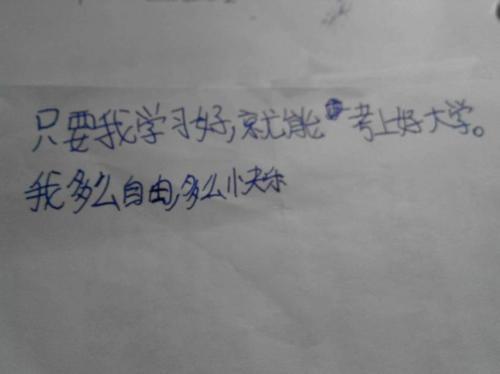 只要我学习好,就能考上好大学。
我多么自由,多么小快乐